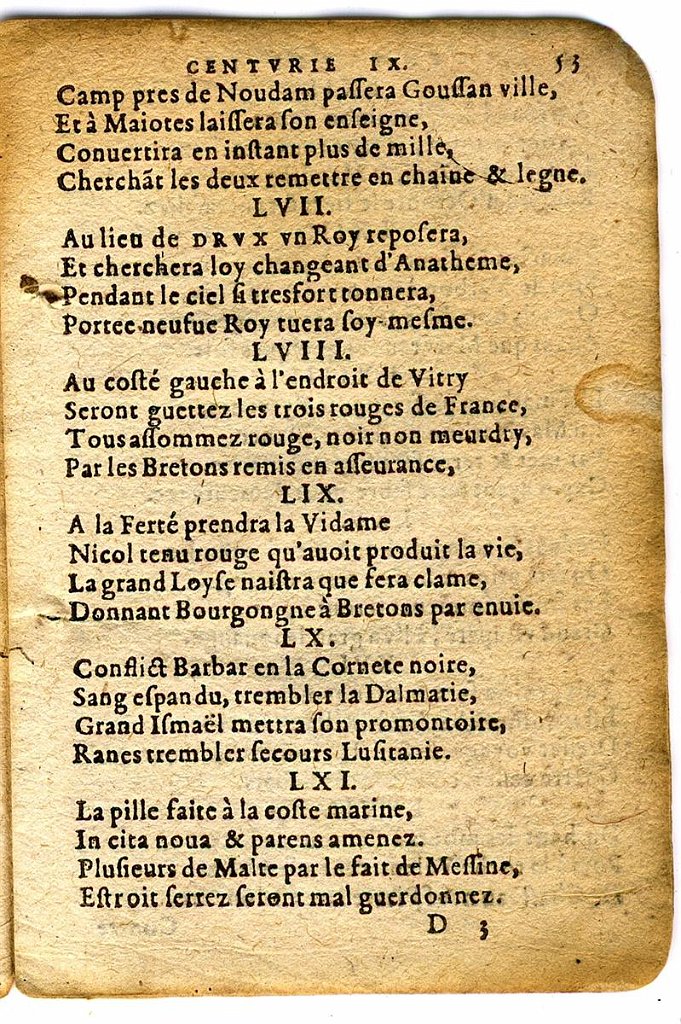 CENTVRIE IX. 53
Camp pres de Noudam paſſera Gouſſan ville,
Et à Maiotes laiſſera ſon enſeigne,
Conuertira en inſtant plus de mille,
Cherchãt les deux remettre en chaîne & legne.
LVII.
Au lieu de DRVX vn Roy repoſera,
Et cherchera loy changeant d'Anatheme,
Pendant le ciel ſi treſfort tonnera,
Portee neufue Roy tuera ſoy-meſme.
LVIII.
Au coſté gauche à l'endroit de Vitry
Seront guettez les trois rouges de France,
Tous aſſommez rouge, noir non meurdry,
Par les Bretons remis en aſſeurance,
LIX.
A la Ferté prendra la Vidame
Nicol tenu rouge qu'auoit produit la vie,
La grand Loyſe naiſtra que fera clame,
Donnant Bourgongne à Bretons par enuie.
LX.
Conflict Barbar en la Cornete noire,
Sang eſpandu, trembler la Dalmatie,
Grand Iſmaël mettra ſon promontoire,
Ranes trembler ſecours Luſitanie.
LXI.
La pille faite à la coſte marine,
In cita noua & parens amenez.
Pluſieurs de Malte par le fait de Meſſine,
Eſtroit ſerrez ſeront mal guerdonnez.
D 3